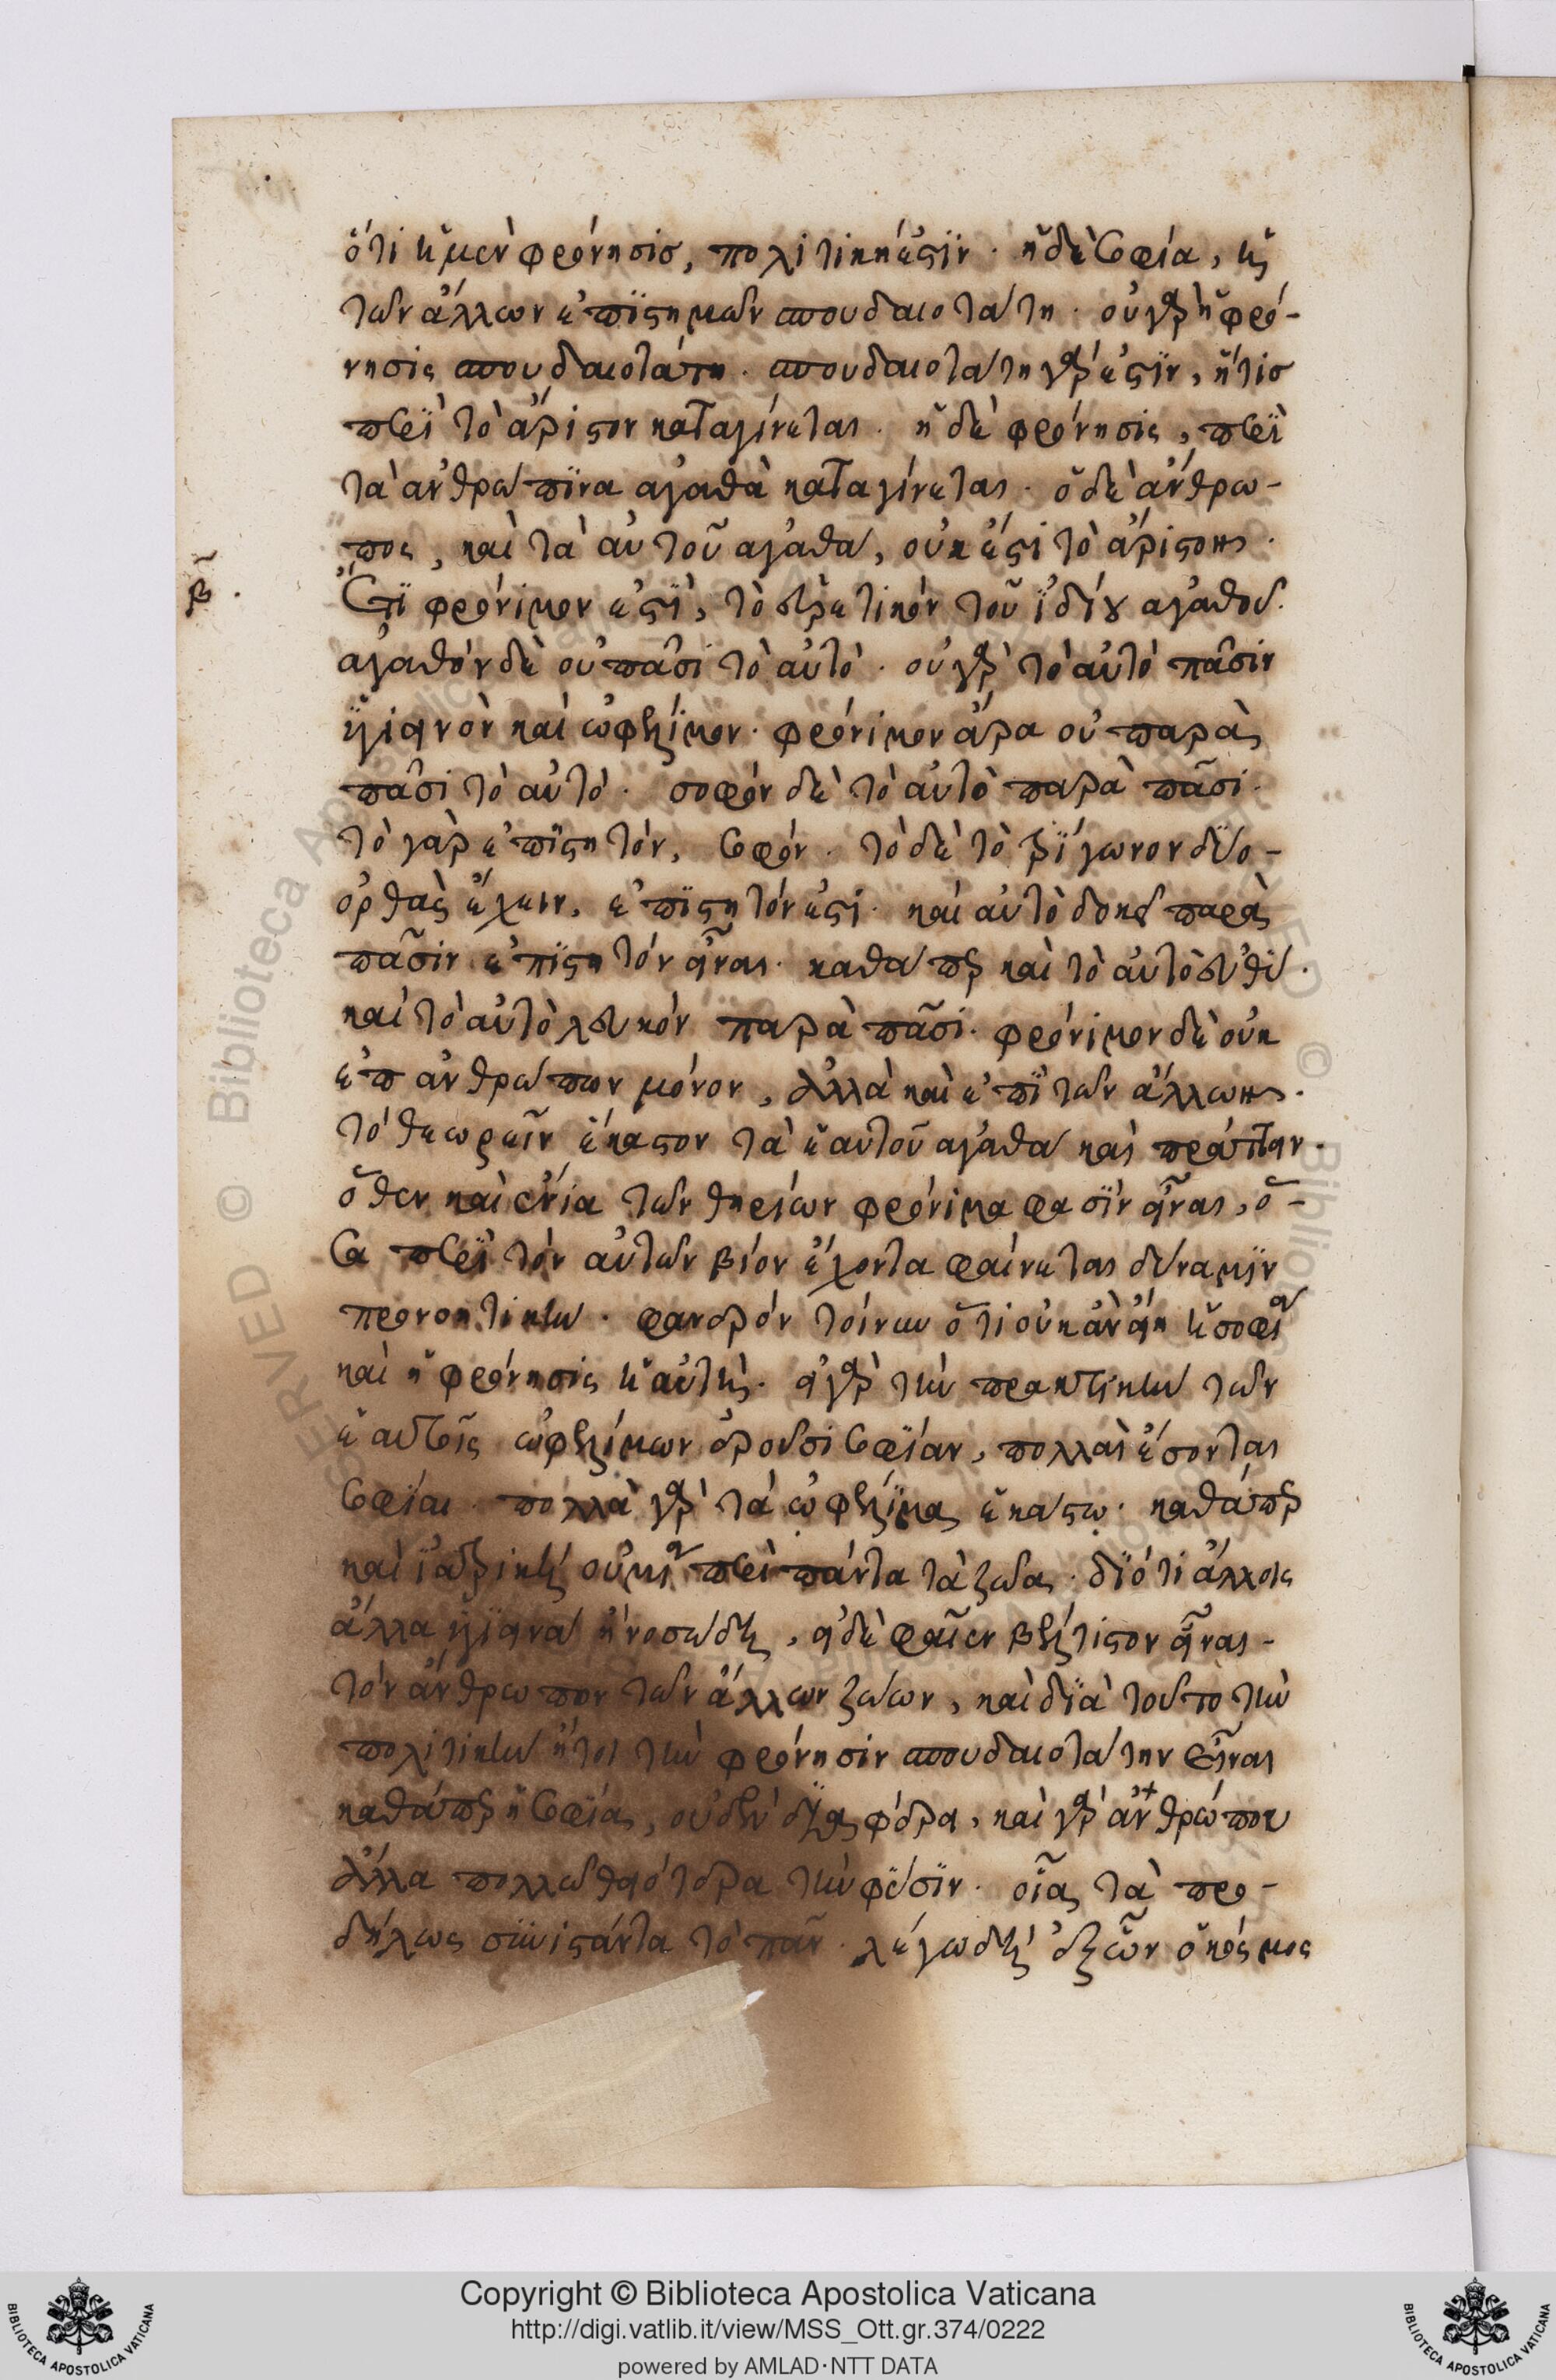 ὅτι ἡ μὲν φρόνησισ, πολιτικὴ ἐστὶν. ἡ δὲ σοφία, ἡ
τῶν ἄλλων ἐπιστημῶν σπουδαιοτάτη. οὐ γὰρ ἡ φρό-
νησις σπουδαιοτάτη. σπουδαιοτάτη γάρ ἐστιν, ἥτισ
περὶ τὸ ἄριστον καταγίνεται. ἡ δὲ φρόνησις, περὶ
τὰ ἀνθρώπινα ἀγαθὰ καταγίνεται. ὁ δὲ ἄνθρω-
πος, καὶ τὰ αὐτοῦ ἀγαθά, οὐκ ἔστι τὸ ἄριστον.
β.
Ἔτι φρόνιμον ἐστὶ, τὸ εὑρετικόν τοῦ ἰδίου ἀγαθοῦ.
ἀγαθόν δὲ οὐ πᾶσι τὸ αὐτό. οὐ γὰρ τὸ αὐτό πᾶσιν
ὑγιεινὸν καὶ ὠφέλιμον. φρόνιμον ἄρα οὐ παρὰ
πᾶσι τὸ αὐτό. σοφόν δὲ τὸ αὐτὸ παρὰ πᾶσι.
τὸ γὰρ ἐπιστητόν, σοφόν. τὸ δὲ τὸ τρίγωνον δύο-
ορθὰς ἔχειν, ἐπιστητόν ἐστι. καὶ αὐτὸ δοκεῖ παρὰ
πᾶσιν ἐπιστητόν εἶναι. καθάπερ καὶ τὸ αὐτὸ εὐθύ.
καὶ τὸ αὐτὸ λευκόν παρὰ πᾶσι. φρόνιμον δὲ οὐκ
ἐπ ἀνθρώπων μόνον, ἀλλὰ καὶ ἐπὶ τῶν ἄλλων.
τό θεωρεῖν ἕκαστον τὰ ἑαυτοῦ ἀγαθά καὶ πράττειν.
ὅθεν καὶ ἔνια τῶν θηρίων φρόνιμα φασὶν εἶναι, ὅ-
σα περὶ τὸν αὐτῶν βίον ἔχοντα φαίνεται δύναμιν
προνοητικήν. φανερόν τοίνυν ὅτι οὐκ ἂν εἴη ἡ σοφία
καὶ ἡ φρόνησις ἡ αὐτή. εἰ γὰρ τὴν πρακτικὴν τῶν
ἑαυτοῖς ὠφελίμων ἐροῦσι σοφίαν, πολλαὶ ἔσονται
σοφίαι. πολλὰ γὰρ τὰ ὠφέλιμα ἑκάστῳ. καθάπερ
καὶ ἰατρικὴ οὐ μία περὶ πάντα τὰ ζῶα. διότι ἄλλοις
ἄλλα ὑγιεινὰ ἢ νοσώδη, εἰ δὲ φαῖεν βέλτιστον εἶναι-
τὸν ἄνθρωπον τῶν ἄλλων ζώων, καὶ διὰ τοῦτο τὴν
πολιτικὴν ἤτοι τὴν φρόνησιν σπουδαιοτάτην εἶναι
καθάπερ ἡ σοφία, οὐδὲν διαφέρει, καὶ γὰρ ἀνθρώπου
ἄλλα πολλῶ θειότερα τὴν φύσιν. οἷα τὰ προ-
δήλως συνιστάντα τὸ πᾶν. λέγω δὴ ἐξ ὧν ὁ κόσμος
Copyright © Biblioteca Apostolica Vaticana
http://digi.vatlib.it/view/MSS_Ott.gr.374/0222
powered by AMLAD·NTT DATA